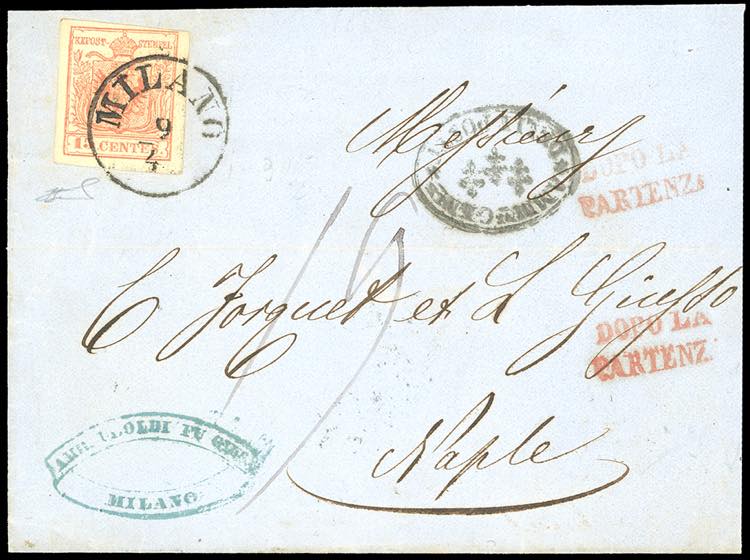 KKPOST-STEMPEL
15 CENTES
MILANO
9
4
Messieurs
DOPO LA
PARTENZA
C Forquet et L Giusso
DOPO LA
PARTENZ
15
Naple
AMB. UBOLDI FU GIUS
MILANO